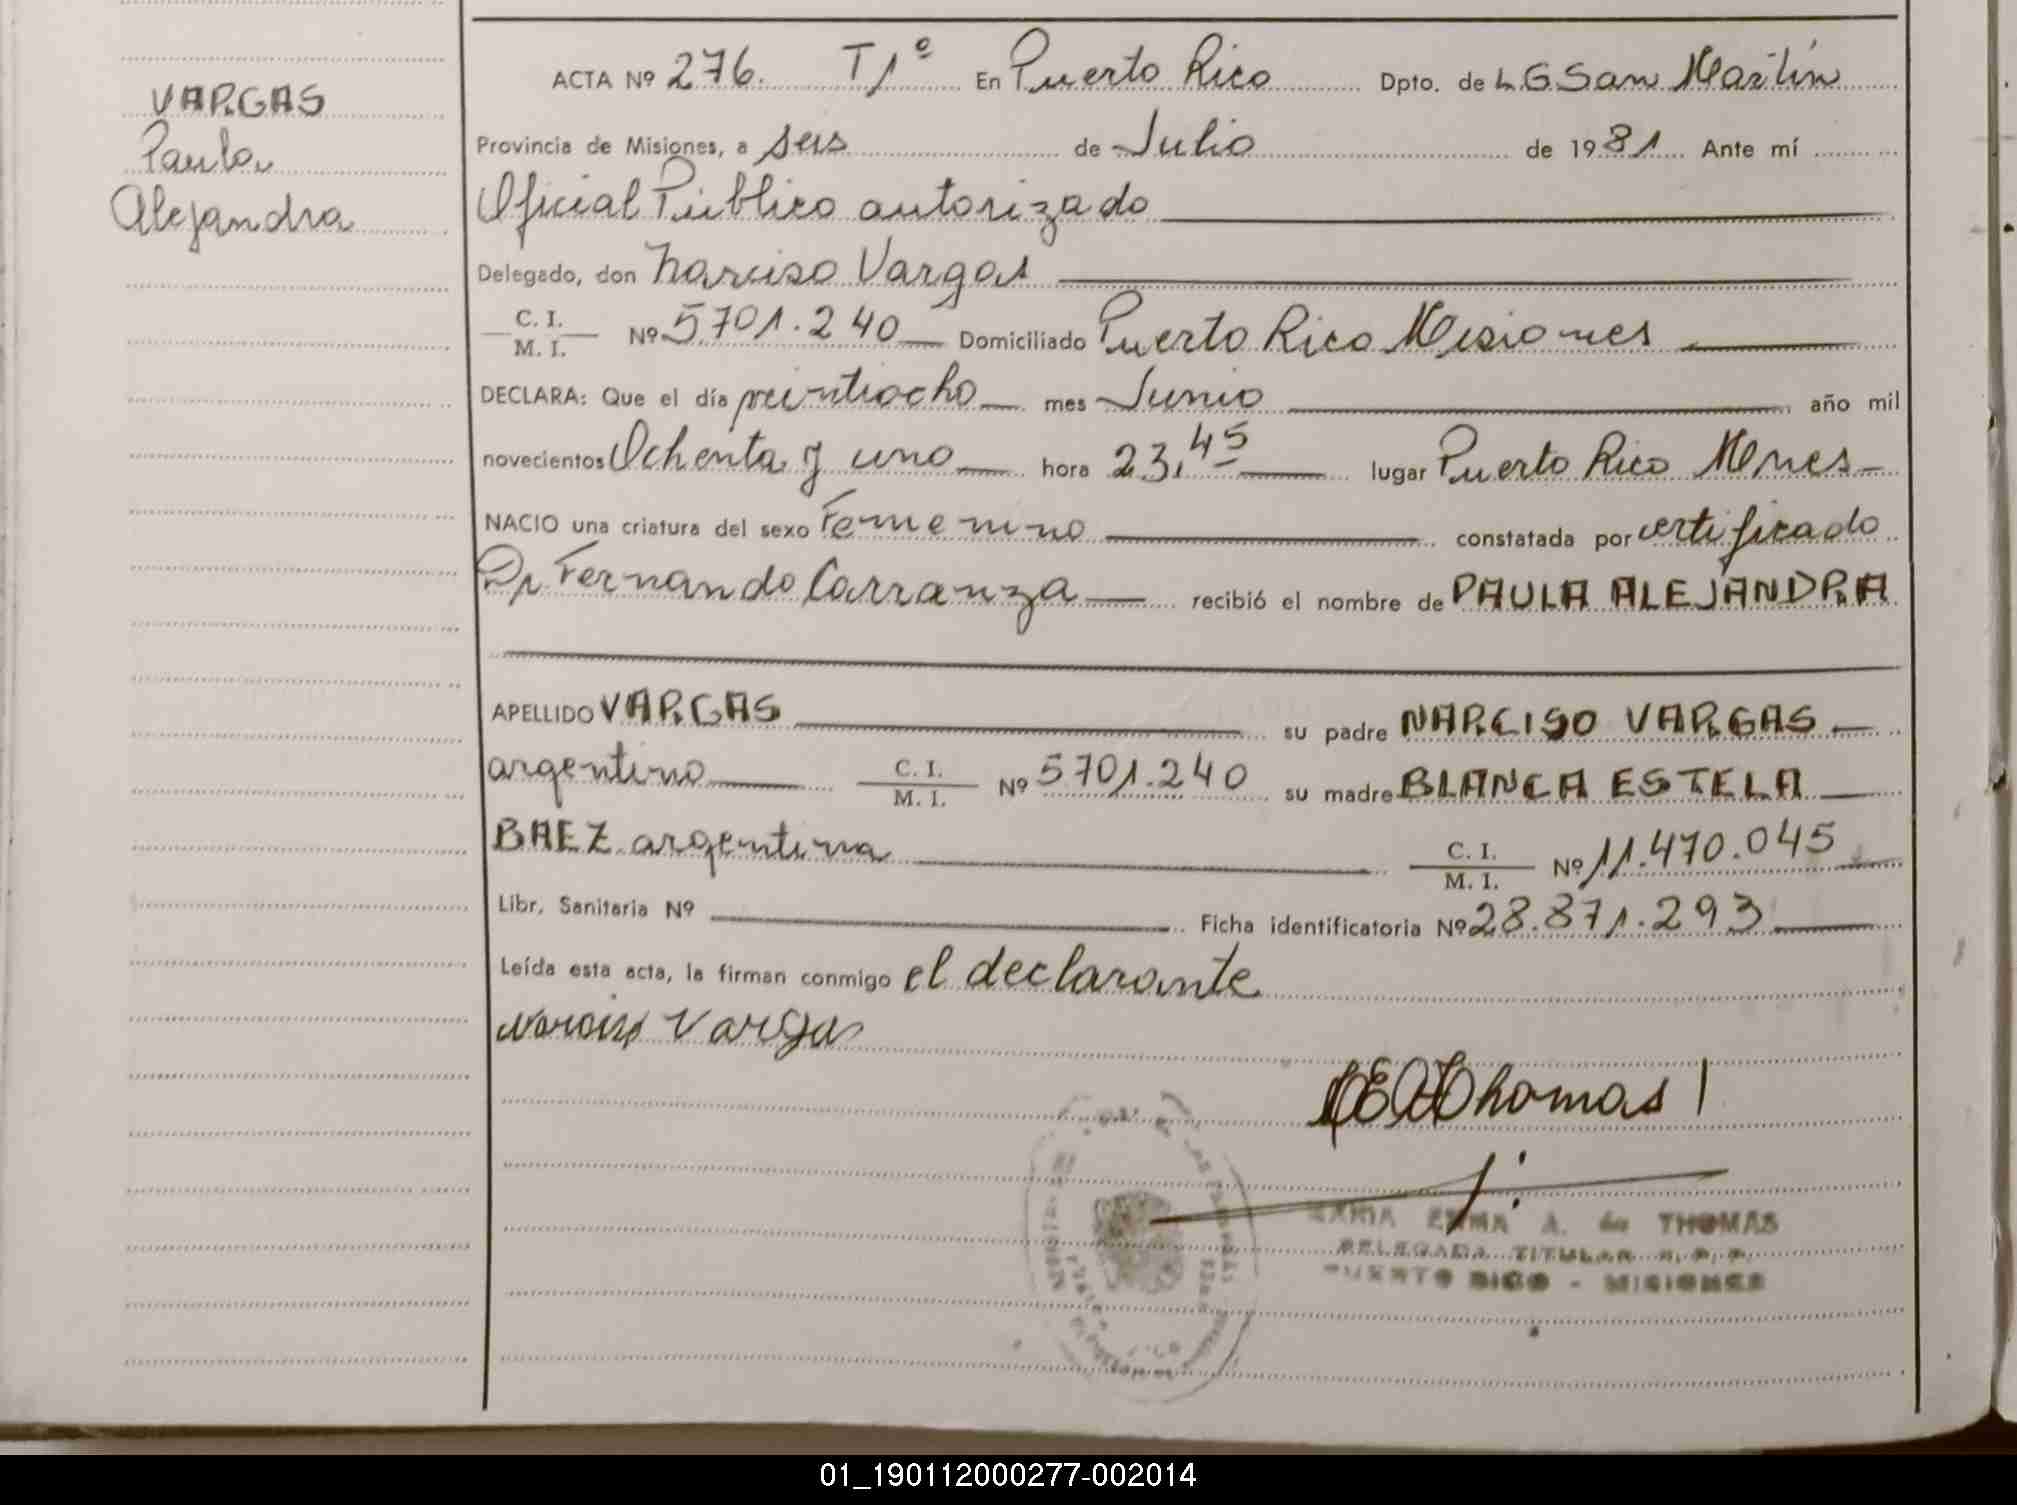 VARGAS
Paula
Alejandra
ACTA Nº 276. T 1º En Puerto Rico Dpto. de L G San Martín
Provincia de Misiones, a seis de Julio de 1981 Ante mí
Oficial Público autorizado
Delegado, don Narciso Vargas
C. I.
M. I. Nº 5.701.240 Domiciliado Puerto Rico Misiones
DECLARA: Que el día veintiocho mes Junio año mil
novecientos Ochenta y uno hora 23,45 lugar Puerto Rico Mnes
NACIO una criatura del sexo Femenino constatada por certificado
Dr Fernando Carranza recibió el nombre de PAULA ALEJANDRA
APELLIDO VARGAS su padre NARCISO VARGAS
argentino C. I. M. I. Nº 5701.240 su madre BLANCA ESTELA
BAEZ argentina C. I. M. I. Nº 11.470.045
Libr. Sanitaria Nº Ficha identificatoria Nº 28.871.293
Leída esta acta, la firman conmigo el declarante
Narciso Vargas
Thomas
MARIA EMMA A. de THOMAS
DELEGADA TITULAR
PUERTO RICO - MISIONES
01_190112000277-002014